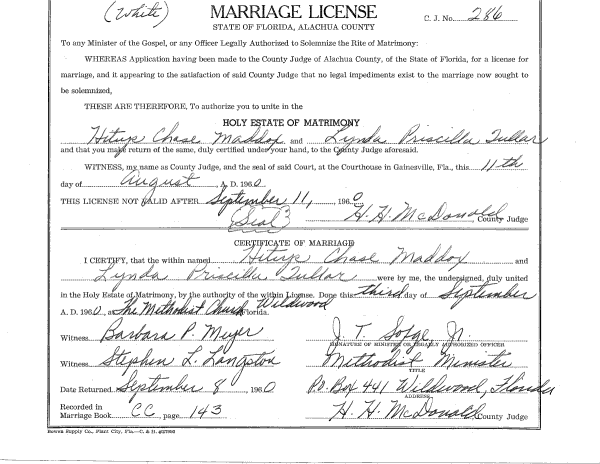 (White)
MARRIAGE LICENSE
C. J. No. 286
STATE OF FLORIDA, ALACHUA COUNTY
To any Minister of the Gospel, or any Officer Legally Authorized to Solemnize the Rite of Matrimony:
WHEREAS Application having been made to the County Judge of Alachua County, of the State of Florida, for a license for
marriage, and it appearing to the satisfaction of said County Judge that no legal impediments exist to the marriage now sought to
be solemnized,
THESE ARE THEREFORE, To authorize you to unite in the
HOLY ESTATE OF MATRIMONY
Chase Maddox and Lynda Priscilla Tullar
and that you make return of the same, duly certified under your hand, to the County Judge aforesaid.
WITNESS, my name as County Judge, and the seal of said Court, at the Courthouse in Gainesville, Fla., this 11th
day of August A. D. 1960
THIS LICENSE NOT VALID AFTER September 11, 1960
(Seal) H. H. McDonald County Judge
CERTIFICATE OF MARRIAGE
I CERTIFY, that the within named Chase Maddox and
Lynda Priscilla Tullar were by me, the undersigned, duly united
in the Holy Estate of Matrimony, by the authority of the within License. Done this third day of September
A. D. 1960, at The Methodist Church Wildwood Florida.
Witness Barbara P. Meyer J. T. Jr.
SIGNATURE OF MINISTER OR LEGALLY AUTHORIZED OFFICER
Witness Stephen L. Langston Methodist Minister
TITLE
Date Returned September 8, 1960 P.O. Box 441 Wildwood, Florida
ADDRESS
Recorded in
Marriage Book CC, page 143 H. H. McDonald County Judge
Bowen Supply Co., Plant City, Fla.—C. & H.